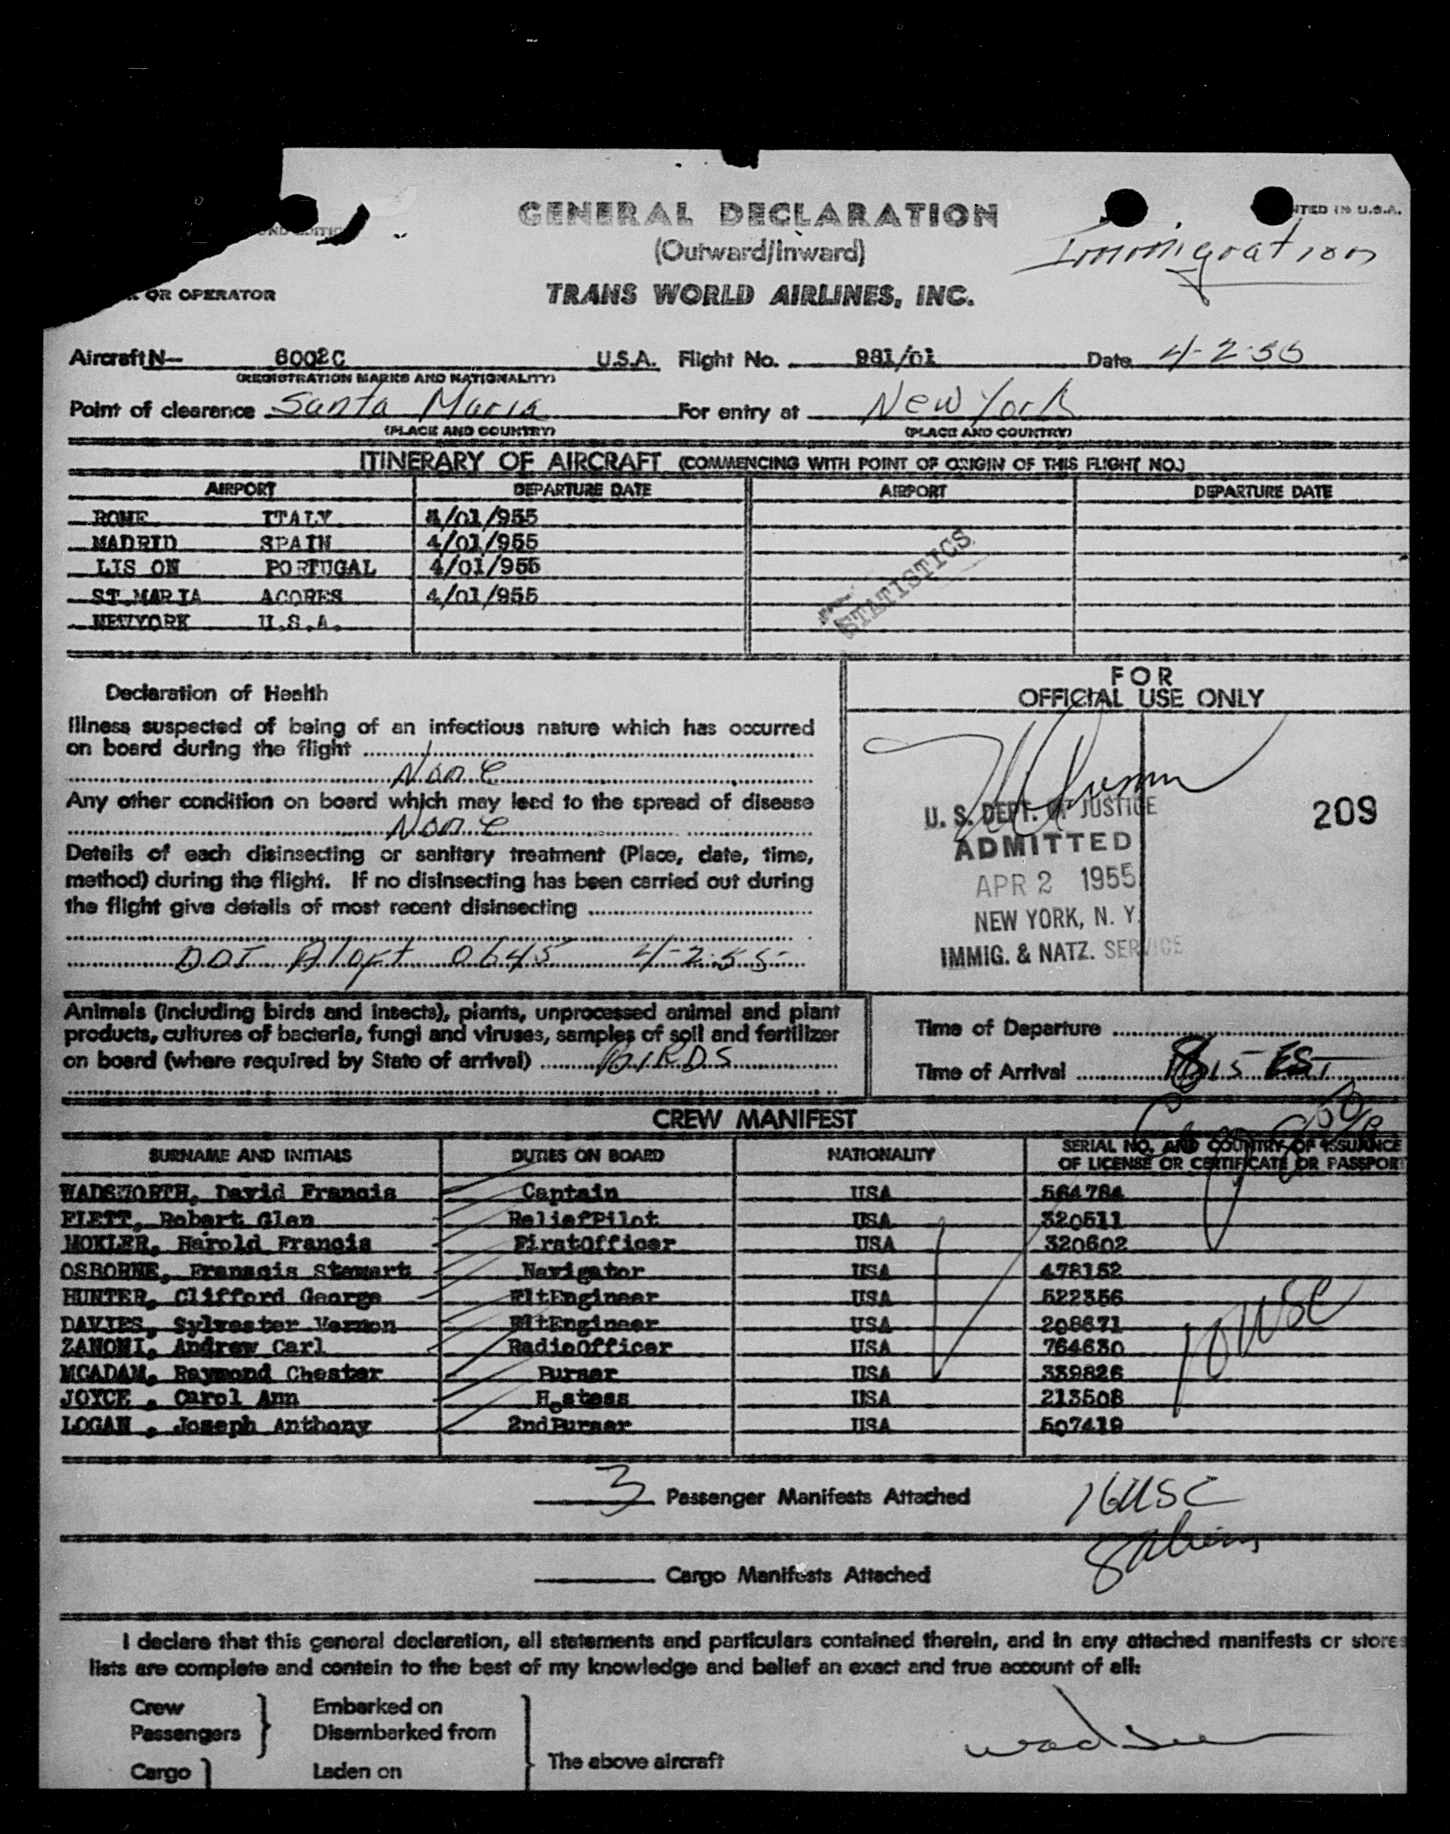 GENERAL DECLARATION
(Outward/Inward)
Immigration
OR OPERATOR
TRANS WORLD AIRLINES, INC.
Aircraft N- 6002C U.S.A. Flight No. 981/01 Date 4-2-55
(REGISTRATION MARKS AND NATIONALITY)
Point of clearence Santa Maria For entry at New York
(PLACE AND COUNTRY) (PLACE AND COUNTRY)
ITINERARY OF AIRCRAFT (COMMENCING WITH POINT OF ORIGIN OF THIS FLIGHT NO.)
AIRPORT DEPARTURE DATE AIRPORT DEPARTURE DATE
ROME ITALY 4/01/955
MADRID SPAIN 4/01/955
LIS ON PORTUGAL 4/01/955
ST.MARIA ACORES 4/01/955
NEWYORK U.S.A.
STATISTICS
Declaration of Health
Illness suspected of being of an infectious nature which has occurred
on board during the flight
None
Any other condition on board which may lead to the spread of disease
None
Details of each disinsecting or sanitary treatment (Place, date, time,
method) during the flight. If no disinsecting has been carried out during
the flight give details of most recent disinsecting
DDT Aloft 0645 4-2-55
FOR
OFFICIAL USE ONLY
U. S. DEPT. OF JUSTICE
ADMITTED
APR 2 1955
NEW YORK, N. Y.
IMMIG. & NATZ. SERVICE
209
Animals (including birds and insects), plants, unprocessed animal and plant
products, cultures of bacteria, fungi and viruses, samples of soil and fertilizer
on board (where required by State of arrival) BIRDS
Time of Departure
Time of Arrival 15 EST
CREW MANIFEST
SURNAME AND INITIALS DUTIES ON BOARD NATIONALITY SERIAL NO. AND COUNTRY OF ISSUANCE
OF LICENSE OR CERTIFICATE OR PASSPORT
WADSWORTH, David Francis Captain USA 564784
FLETT, Robert Glen ReliefPilot USA 320511
MOKLER, Harold Francis FirstOfficer USA 320602
OSBORNE, Franscis Stewart Navigator USA 478152
HUNTER, Clifford George FltEngineer USA 522356
DAVIES, Sylvester Vernon FltEngineer USA 208671
ZANONI, Andrew Carl RadioOfficer USA 764630
MCADAM, Raymond Chester Purser USA 339826
JOYCE , Carol Ann Hostess USA 213508
LOGAN , Joseph Anthony 2ndPurser USA 507419
10 USC
3 Passenger Manifests Attached
16 USC
8 aliens
Cargo Manifests Attached
I declare that this general declaration, all statements and particulars contained therein, and in any attached manifests or stores
lists are complete and contain to the best of my knowledge and belief an exact and true account of all:
Crew Embarked on
Passengers Disembarked from
The above aircraft
Cargo Laden on